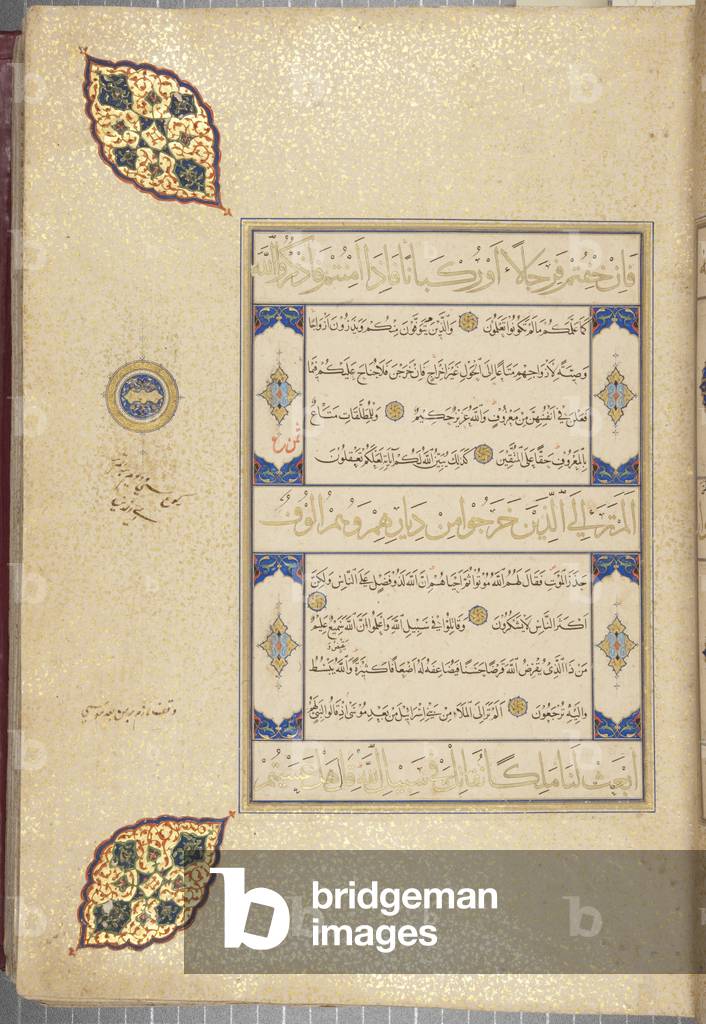 فان خفتم فرجالا او ركبانا فاذا امنتم فاذكروا الله
كما علمكم ما لم تكونوا تعلمون والذين يتوفون منكم ويذرون ازواجا
وصية لازواجهم متاعا الى الحول غير اخراج فان خرجن فلا جناح عليكم فيما
فعلن في انفسهن من معروف والله عزيز حكيم وللمطلقات متاع
بالمعروف حقا على المتقين كذلك يبين الله لكم آياته لعلكم تعقلون
الم تر الى الذين خرجوا من ديارهم وهم الوف
حذر الموت فقال لهم الله موتوا ثم احياهم ان الله لذو فضل على الناس ولكن
اكثر الناس لا يشكرون وقاتلوا في سبيل الله واعلموا ان الله سميع عليم
من ذا الذي يقرض الله قرضا حسنا فيضاعفه له اضعافا كثيرة والله يقبض ويبسط
واليه ترجعون الم تر الى الملاء من بني اسرائيل من بعد موسى اذ قالوا لنبي لهم
ابعث لنا ملكا نقاتل في سبيل الله قال هل عسيتم
bridgeman
images